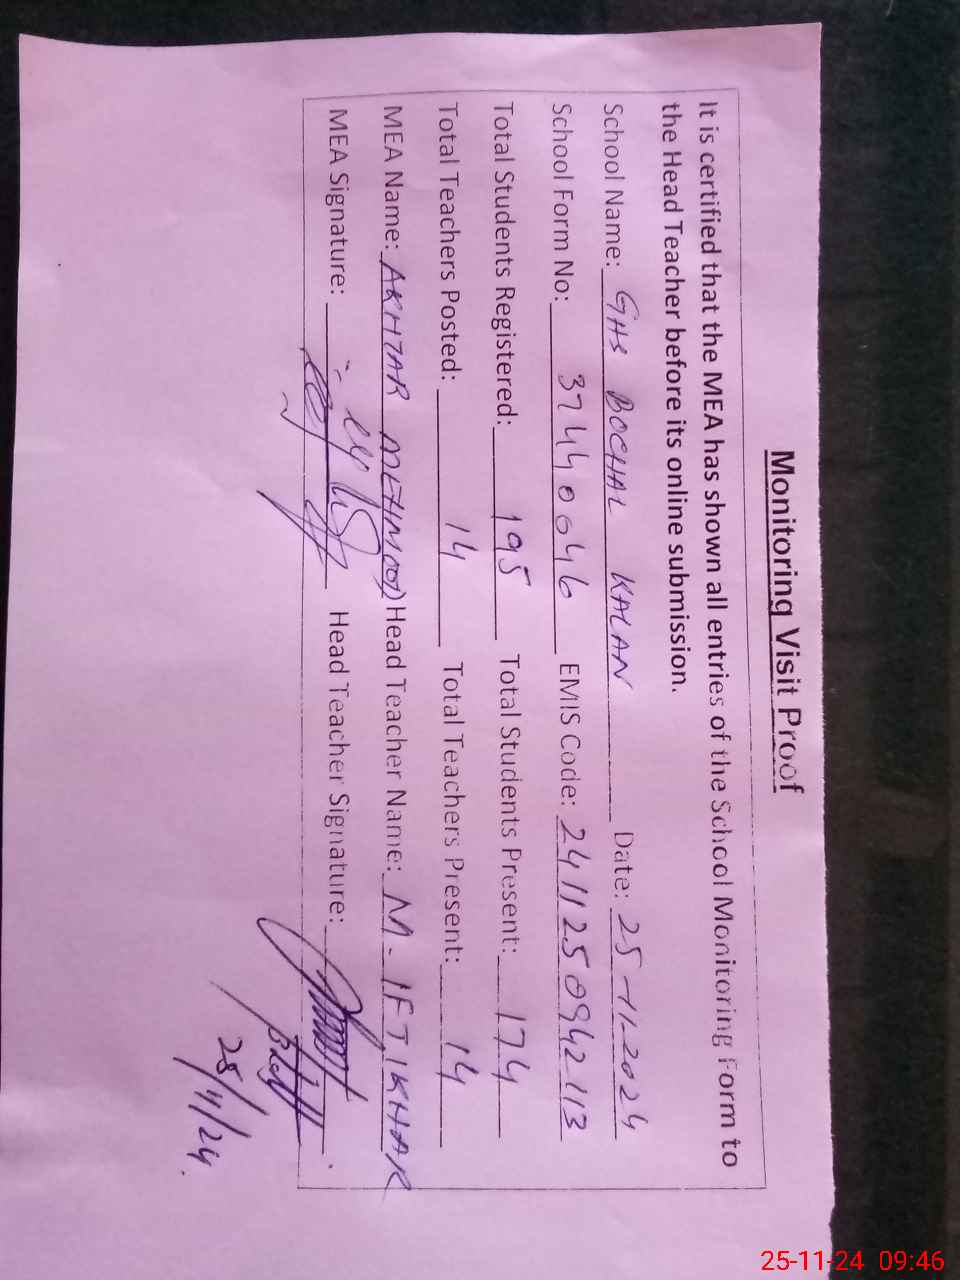 Monitoring Visit Proof
It is certified that the MEA has shown all entries of the School Monitoring Form to
the Head Teacher before its online submission.
School Name: GHS BOCHAL KALAN Date: 25-11-2024
School Form No: 37440046 EMIS Code: 2411250942113
Total Students Registered: 195 Total Students Present: 174
Total Teachers Posted: 14 Total Teachers Present: 14
MEA Name: AKHTAR MEHMOOD Head Teacher Name: M. IFTIKHAR
MEA Signature: Head Teacher Signature:
25/11/24.
25-11-24 09:46